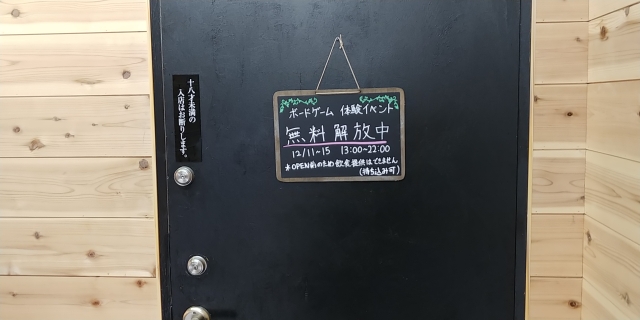 十八才未満の
入店はお断りします。
ボードゲーム 体験イベント
無料解放中
12/11~15 13:00~22:00
*OPEN前のため飲食提供はできません
(持ち込み可)